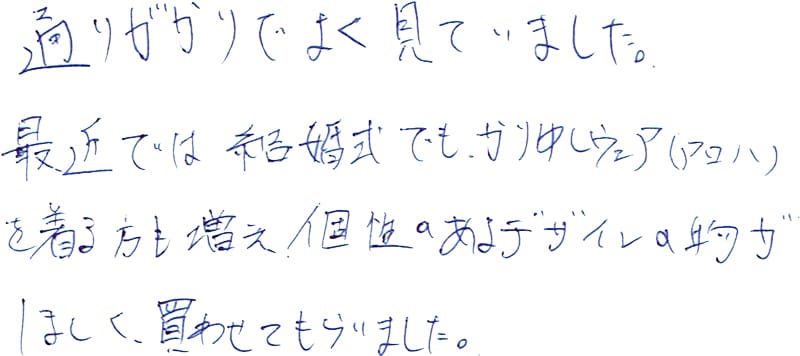 通りがかりでよく見ていました。
最近では結婚式でも、かりゆしウェア(アロハ)
を着る方も増え、個性のあるデザインの物が
ほしく、買わせてもらいました。